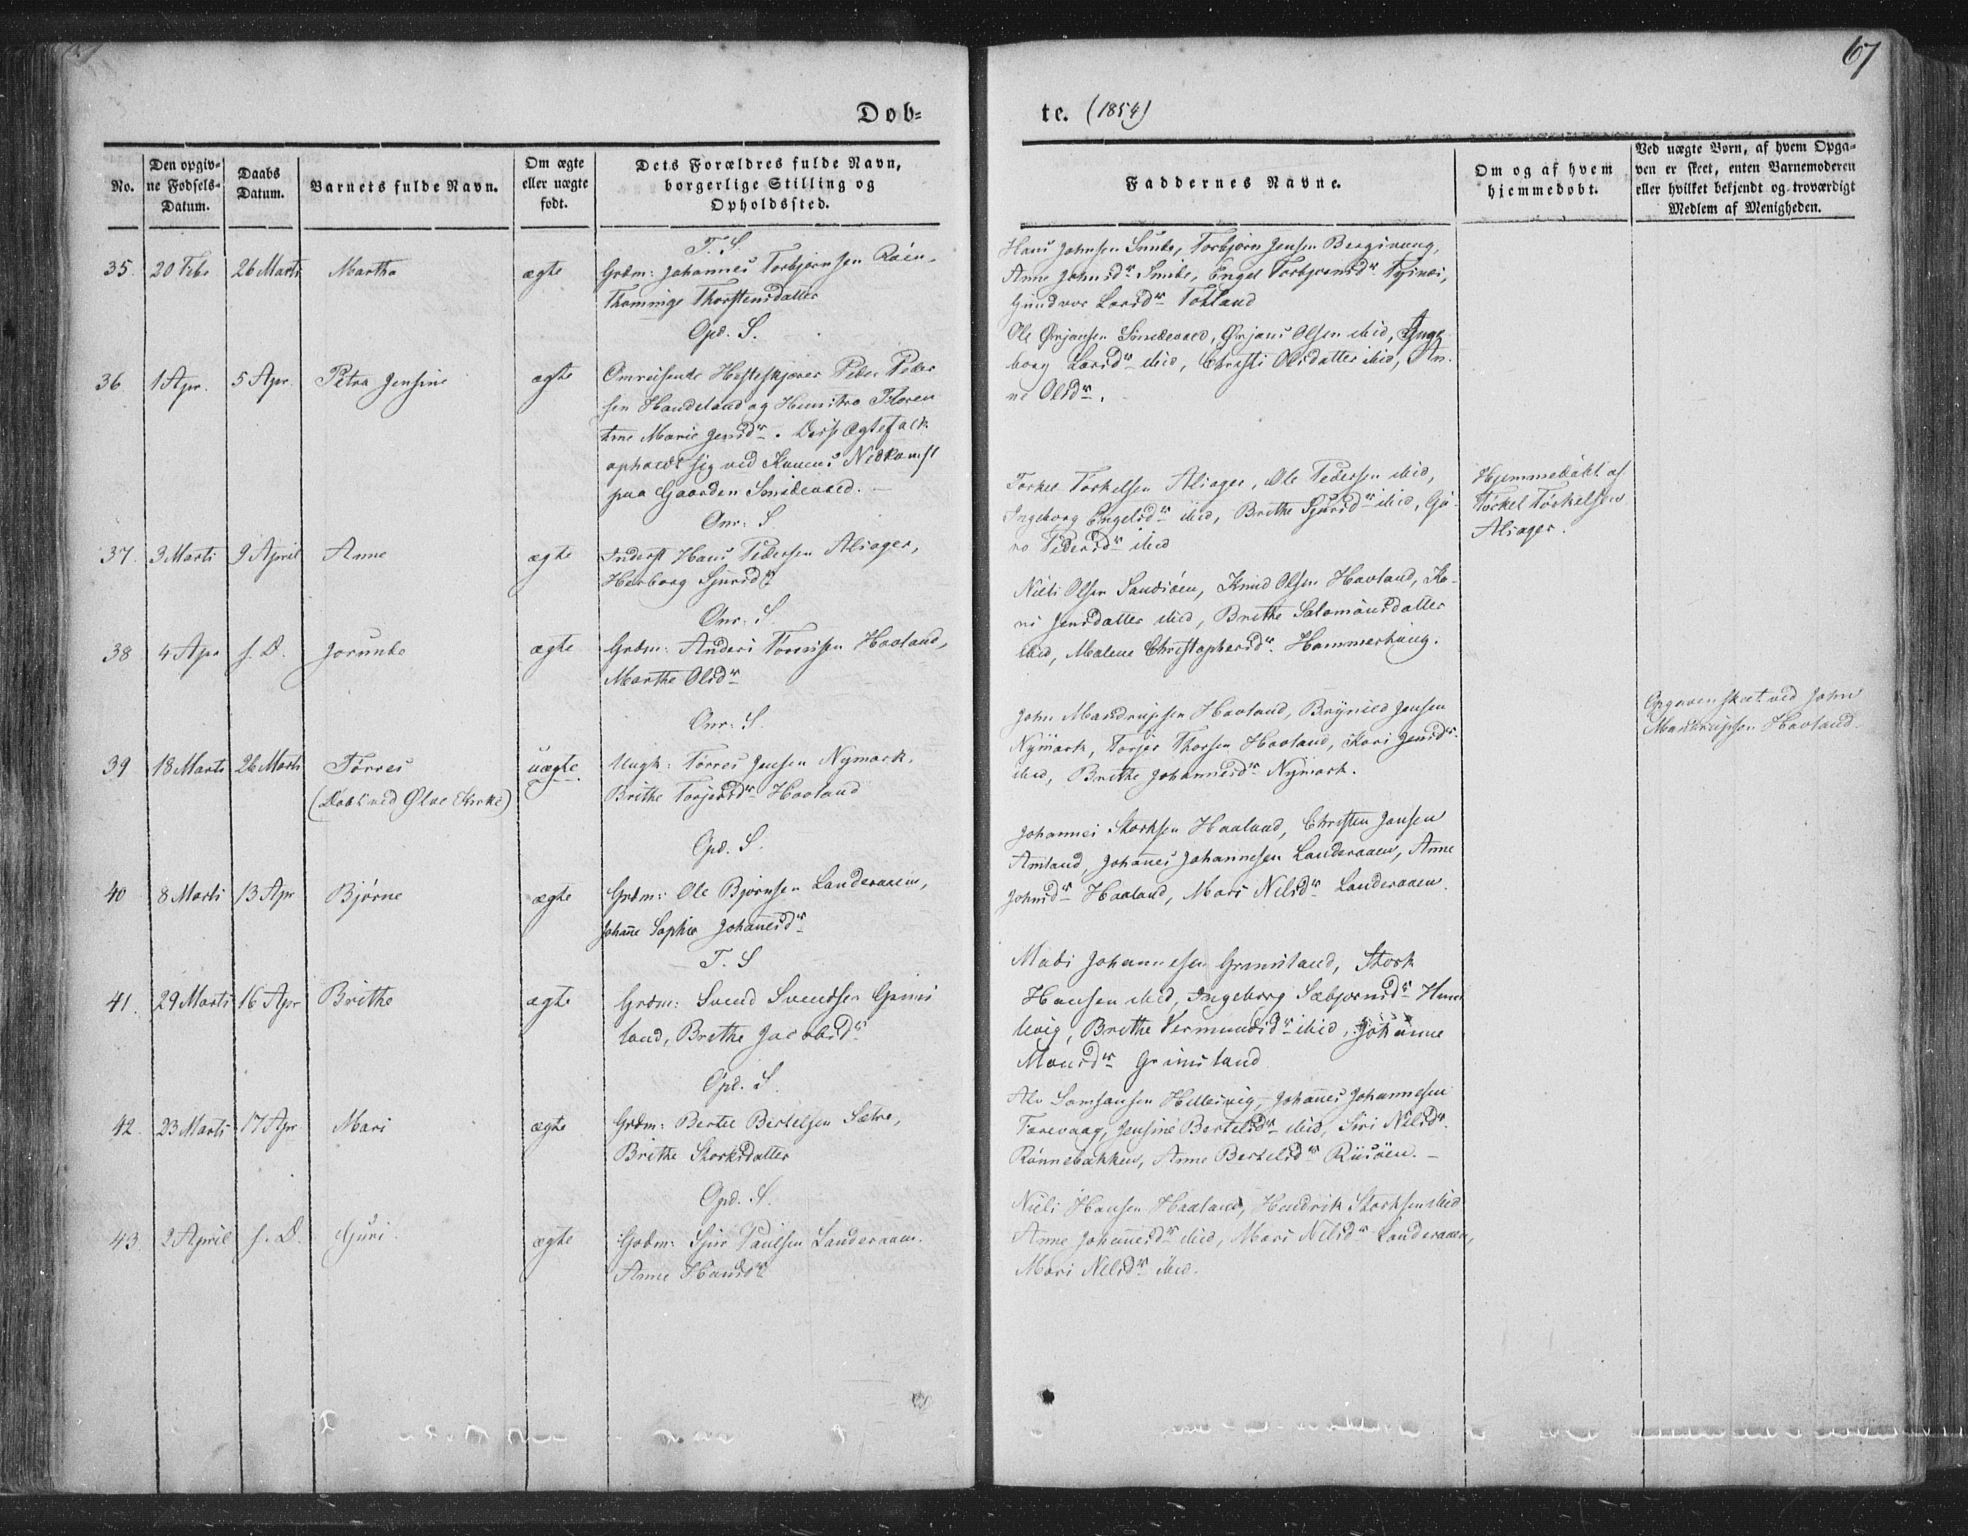 67
Døb=
te. (1854)
No.
Den opgiv=
ne Fødsels=
Datum.
Daabs
Datum.
Barnets fulde Navn.
Om ægte
eller uægte
født.
Dets Forældres fulde Navn,
borgerlige Stilling og
Opholdssted.
Faddernes Navne.
Om og af hvem
hjemmedøbt.
Ved uægte Børn, af hvem Opga=
ven er skeet, enten Barnemoderen
eller hvilket bekjendt og troværdigt
Medlem af Menigheden.
T. S
35. 20 Febr 26 Marts Martha ægte Grdm: Johannes Torbjørnsen Røen,
Thorstensdatter
Hans Johnsen Torbjørn Jensen
Anne Johnsdr Engel Torbjørnsdr
Gundvor Larsdr Totland
Opd. S.
36 1 Apr. 5 Apr. Petra Jensine ægte Omreisende Hesteskjærer Peder Peder
sen Handeland og Hustru Floren
tine Marie Jensdr. Disse Ægtefolk
opholdt sig ved Konens Nedkomst
paa Gaarden Smidevold.
Ole Ørjansen Smidevold, Ørjans Olsen ibid, Inge
borg Larsd ibid, Christi Olsdatter ibid, An
ne Olsdr.
Onr. S.
37. 3 Marts 9 April Anne ægte Inderst Hans Pedersen Alsager,
Herborg Sjursdr
Torkel Torkelsen Alsager, Ole Pedersen ibid,
Ingeborg Engelsdr ibid, Brithe Sjursdr ibid, Gu
ro Pedersdr ibid
Hjemmedøbt af
Torkel Torkelsen
Alsager.
Onr. S.
38 4 Apr s. D. Jorunde ægte Grdm: Anders Tørrissen Havland,
Marthe Olsdr
Niels Olsen Sandvøen, Knud Olsen Havland, Ka
ri Jensdatter ibid, Brithe Salomonsdatter
ibid, Malene Christophersdr. Hammerhoug.
Onr. S.
39 18 Marts 26 Marts Tørres uægte Ungk: Tørres Jensen Nymark,
(Døbt ved Ølve Kirke) Brithe Torjersdr Havland
John Mandrupsen Havland, Brynild Jensen
Nymark, Torjer Thorsen Havland, Kari Jensdr.
ibid, Brithe Johannesdr Nymark.
Opgaven skeet ved John
Mandrupsen Havland
Opd. S.
40 8 Marts 13 Apr Bjørne ægte Grdm: Ole Bjørnsen Landeraaen,
Johanne Sophie Johannesdr
Johannes Storksen Haaland, Christen Jansen
Amland, Johannes Johannesen Landeraaen, Anne
Johnsdr Haaland, Mari Nelsdr Landeraaen.
T. S
41. 29 Marts 16 Apr Brithe ægte Grdm: Svend Svendsen Grims
land, Brethe Jacobsdr
Mads Johannesen Grimsland, Stork
Hansen ibid, Ingeborg Sæbjørnsdr Hun
dvig, Brithe Vermundsdr ibid, Johanne
Monsdr Grimsland
Opd. S
42. 23 Marts 17 Apr Mari ægte Grdm: Bertel Bertelsen Sætre,
Brithe Storksdatter
Alv Samsonsen Hellesvig, Johannes Johannesen
Færevaag, Jensine Bertelsdr ibid, Siri Nelsdr.
Rønnebakken, Anne Bertelsdr
Opd. S.
43. 2 April s. D. Guri ægte Grdm: Sjur Paulsen Landeraaen.
Anne Hansdr
Niels Hansen Haaland, Hendrik Storksen ibid
Anne Johannesdr ibid, Mari Nelsdr Landeraaen,
Mari Nelsdr ibid.